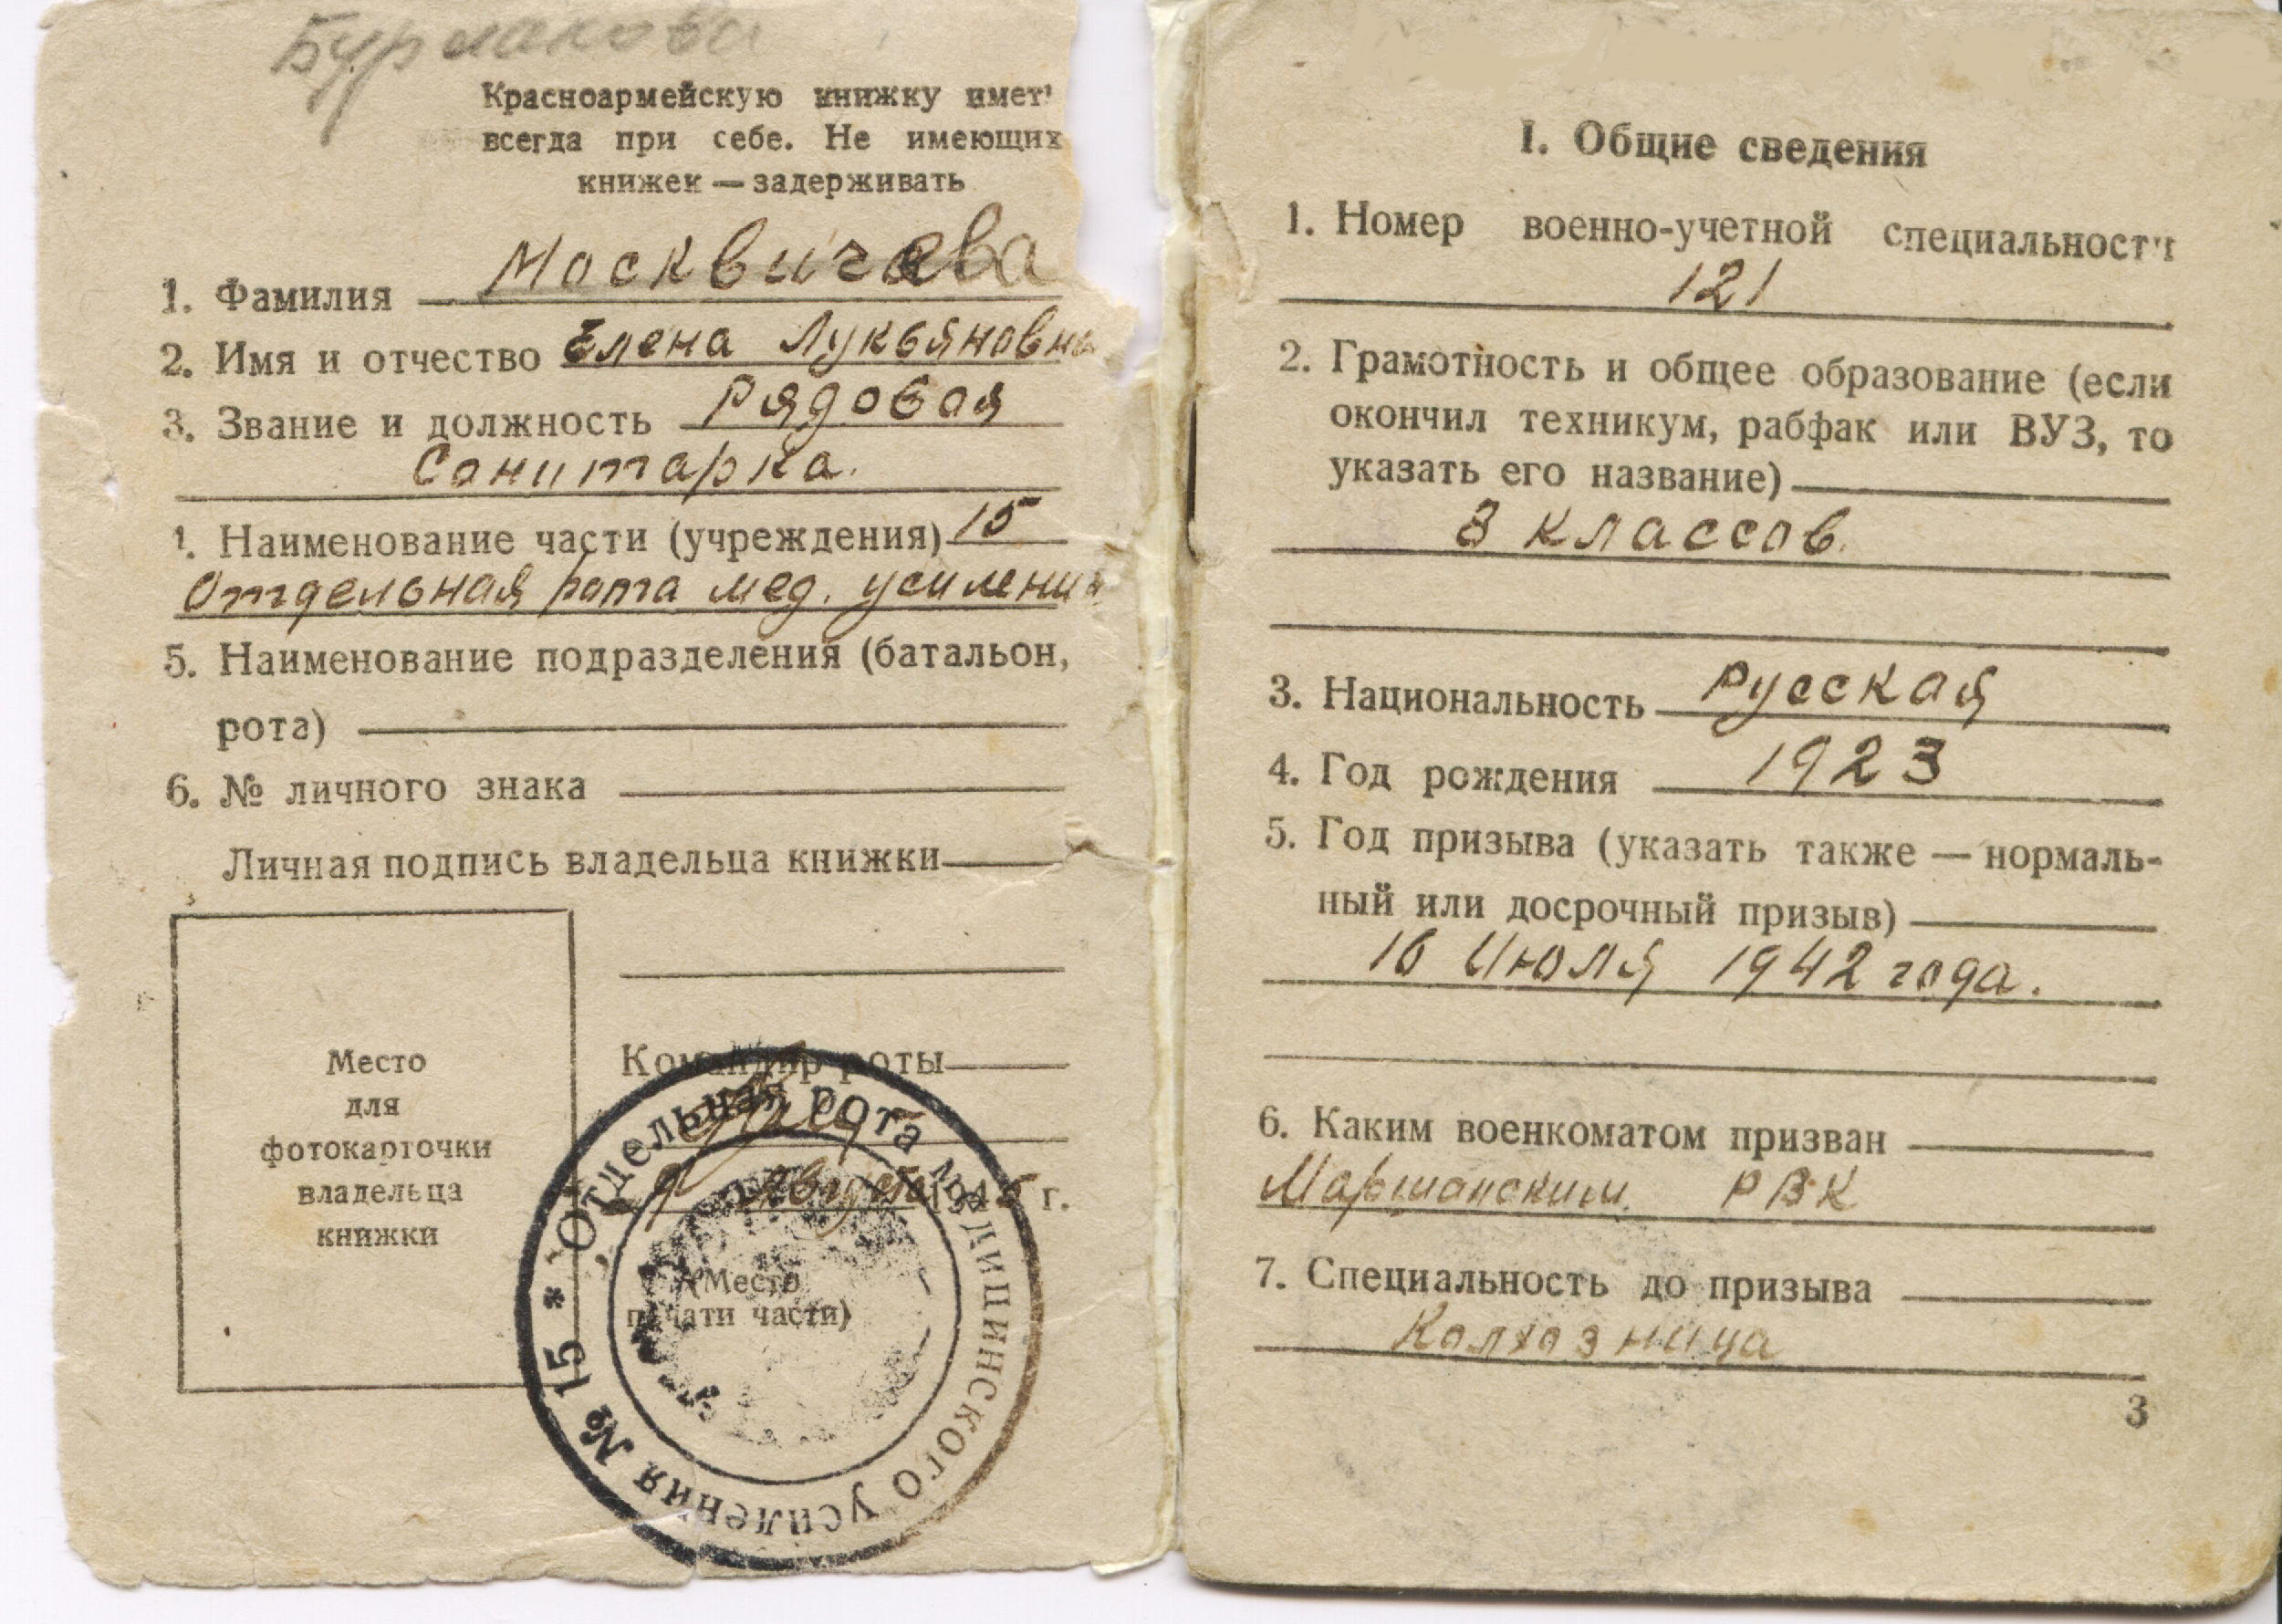 Бурлакова
Красноармейскую книжку имет
всегда при себе. Не имеющих
книжек — задерживать
1. Фамилия Москвичева
2. Имя и отчество Елена Лукьяновна
3. Звание и должность Рядовая
Санитарка.
1. Наименование части (учреждения) 15
Отдельная рота мед. усиления
5. Наименование подразделения (батальон,
рота)
6. № личного знака
Личная подпись владельца книжки
Место
для
фотокарточки
владельца
книжки
Командир роты
9 Августа 1945 г.
(Место
печати части)
* Отдельная рота медицинского усиления № 15 *
I. Общие сведения
1. Номер военно-учетной специальности
121
2. Грамотность и общее образование (если
окончил техникум, рабфак или ВУЗ, то
указать его название)
8 классов.
3. Национальность Русская
4. Год рождения 1923
5. Год призыва (указать также — нормаль-
ный или досрочный призыв)
16 Июля 1942 года.
6. Каким военкоматом призван
Маршанским РВК
7. Специальность до призыва
Колхозница
3